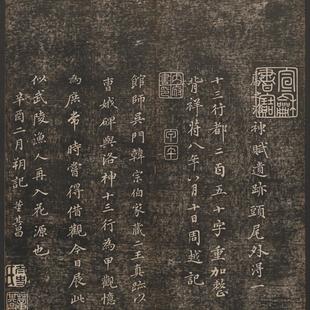 神賦遺跡頭尾外淂一
十三行都二百五十字重加整
背祥苻八年八月十日周越記
館師吳門韓宗伯家藏二王真跡以
曹娥碑與洛神十三行為甲觀憶
為庶常時嘗得借觀今日展此
似武陵漁人再入花源也
辛酉二月朔記 董其昌